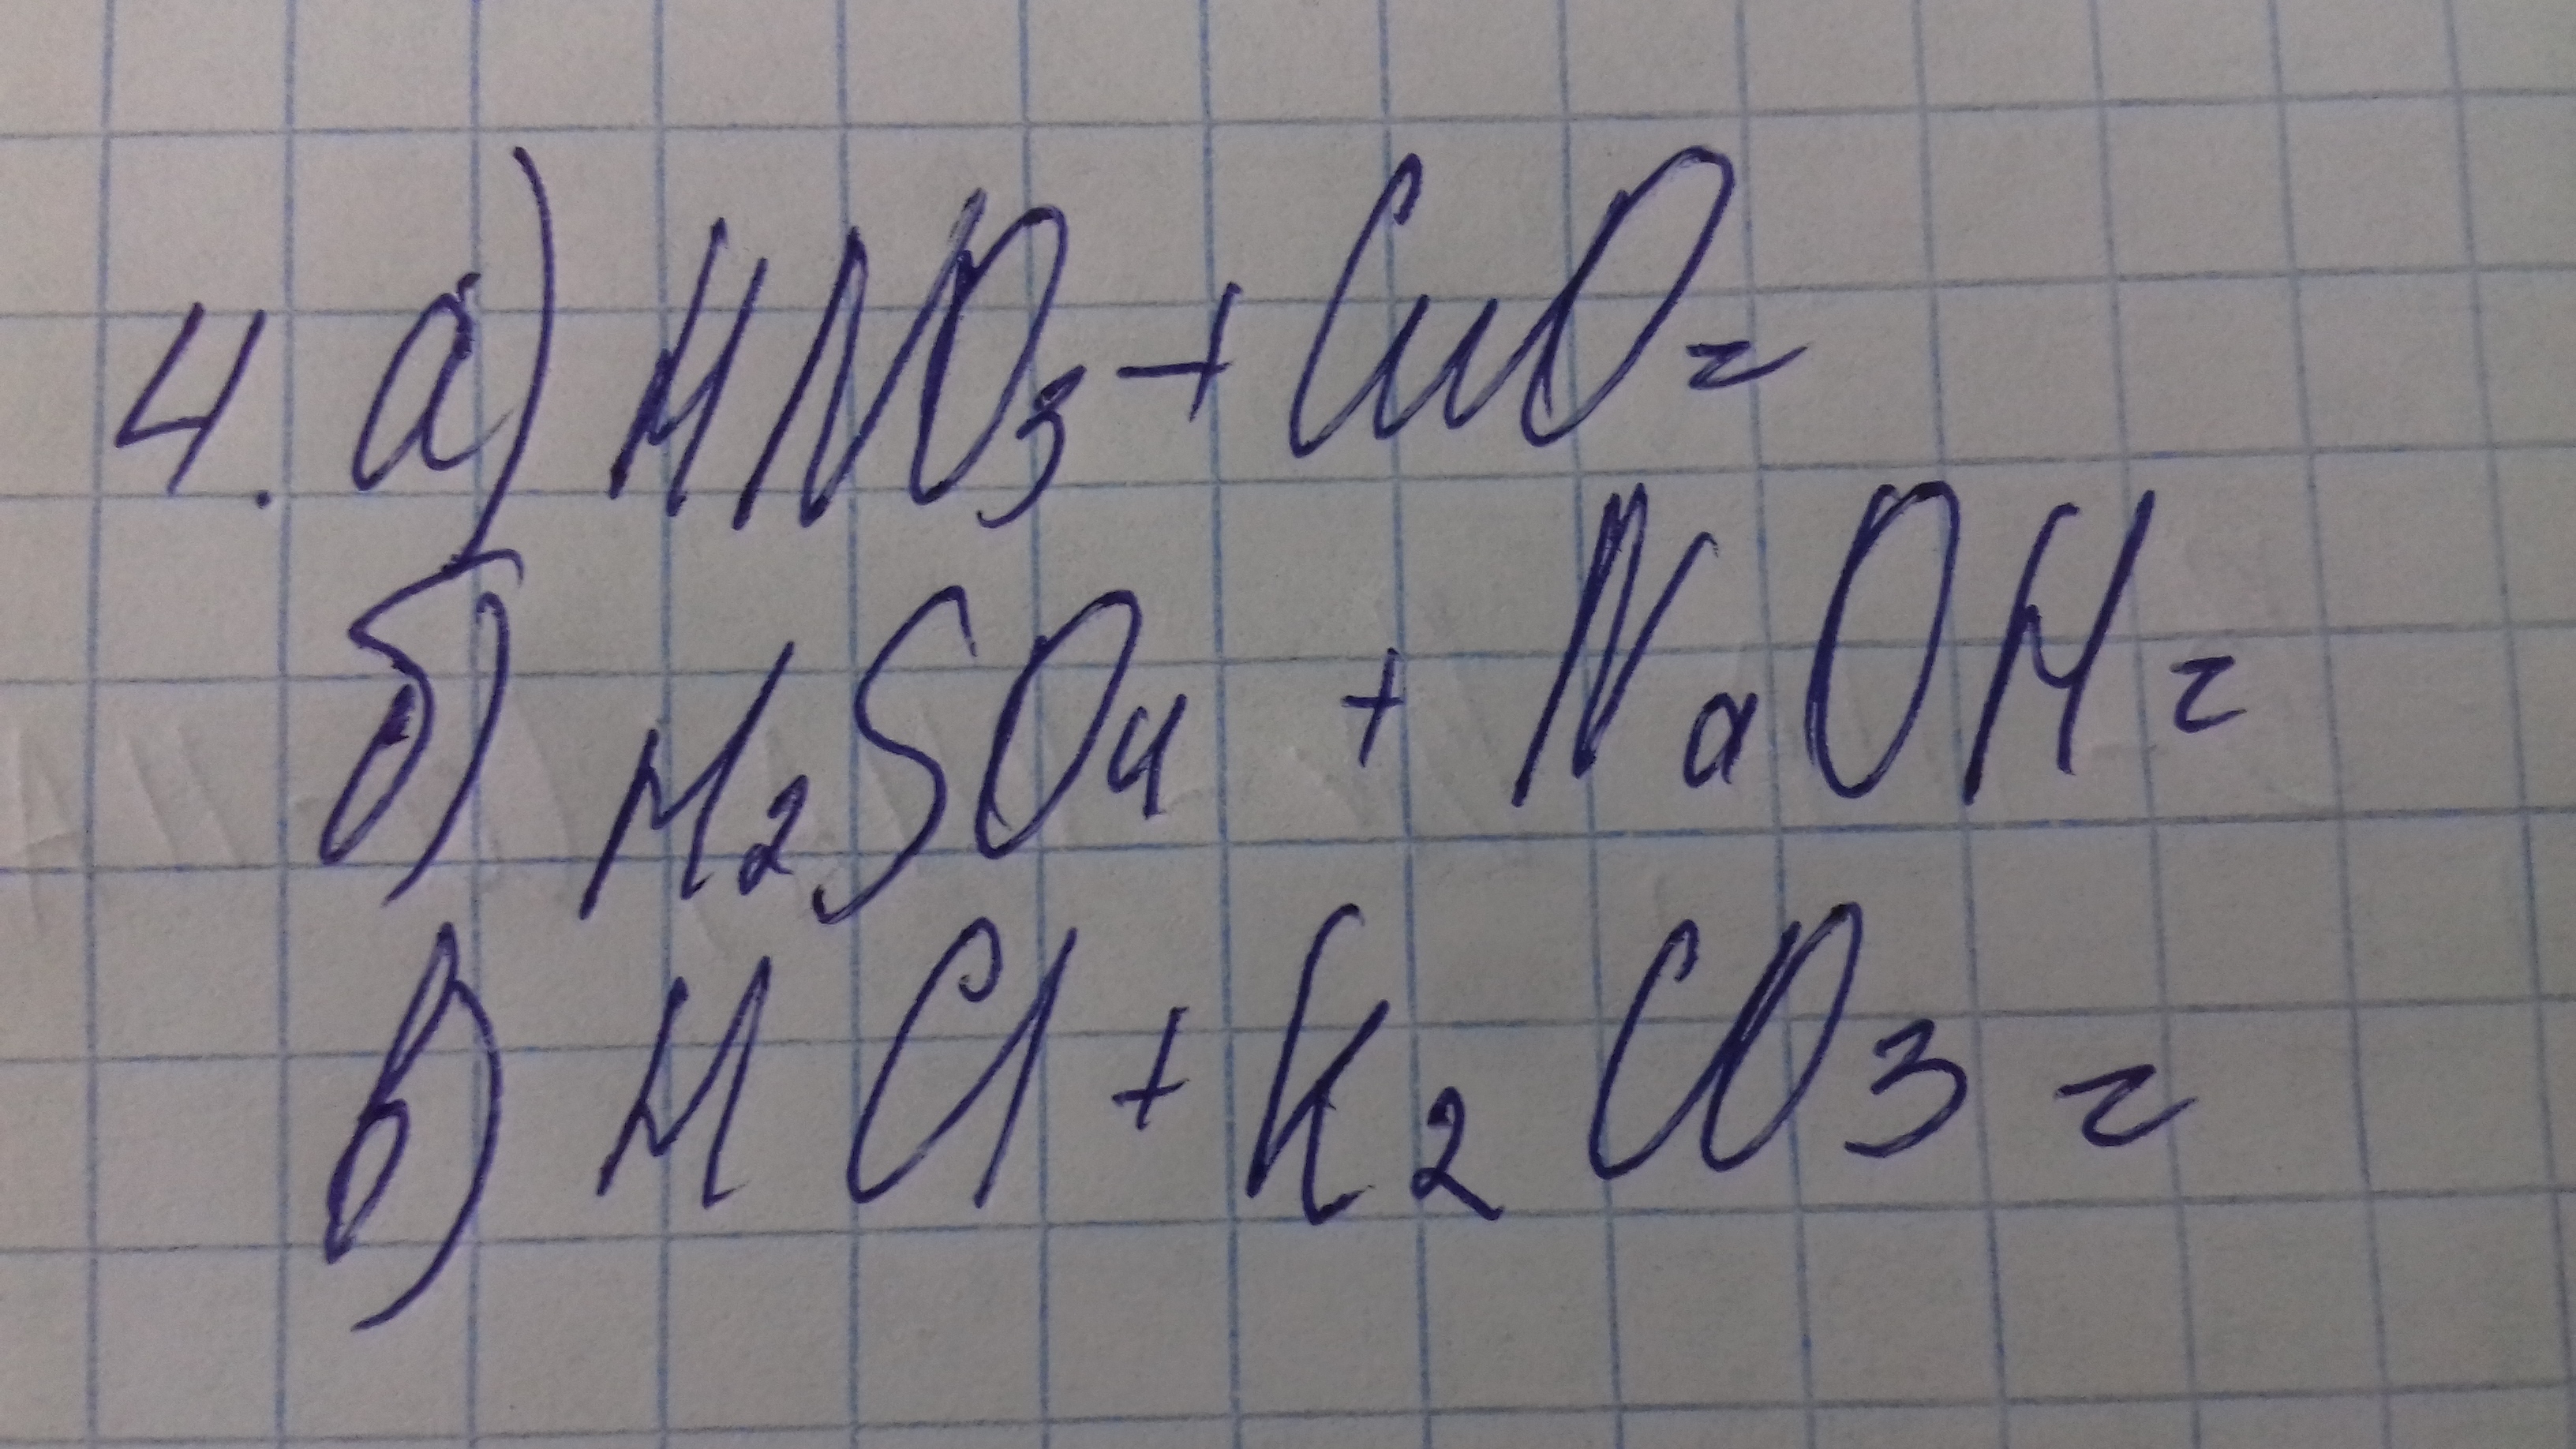 4. а) HNO₃ + CuO =
б) H₂SO₄ + NaOH =
в) HCl + K₂CO₃ =